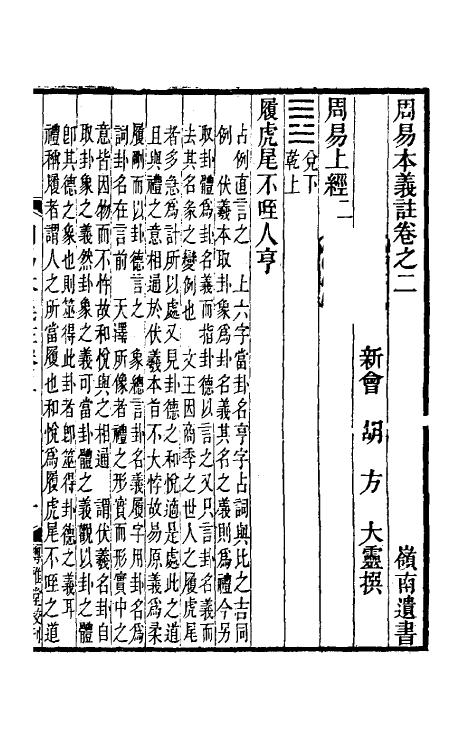 周易本義註卷之二
嶺南遺書
新會 胡方 大靈撰
周易上經二
兌下
乾上
履虎尾不咥人亨
占例直言之 上六字當卦名亨字占詞與比之吉同
例 伏羲本取卦象爲卦名義其名之義則爲禮今另
取卦體爲卦名義而指卦德以言之又只言卦名義而
去其名象之變例也 文王因商季之世人之履虎尾
者多急爲計所以處又見卦德之和悅適是處此之道
且與禮之意相通於伏羲本旨不大悖故易原義爲柔
履剛而以卦德言之 彖總言卦名義履字用卦名爲
詞卦名在言前 天澤所像者禮之形實而形實中之
意皆因物而不忤故和悅與之相通 謂伏羲名卦自
取卦象之義然卦象之義可當卦體之義觀以卦之體
卽其德之象也則筮得此卦者卽筮得卦德之義耳
禮稱履者謂人之所當履也和悅爲履虎尾不咥之道
一
粵雅堂校刊